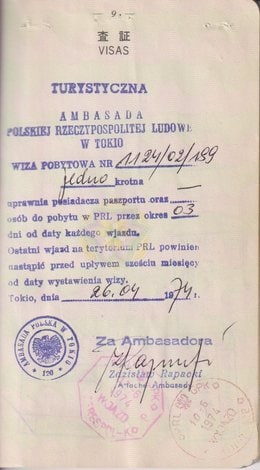 9
査証
VISAS
TURYSTYCZNA
AMBASADA
POLSKIEJ RZECZYPOSPOLITEJ LUDOWE
W TOKIO
WIZA POBYTOWA NR 1124/02/199
jedno krotna —
uprawnia posiadacza paszportu oraz
osób do pobytu w PRL przez okres 03
dni od daty każdego wjazdu.
Ostatni wjazd na terytorium PRL powinien
nastąpić przed upływem sześciu miesięcy
od daty wystawienia wizy.
Tokio, dnia 26.04 1974 r.
Za Ambasadora
Zdzisław Rapacki
Attaché Ambasady
AMBASADA POLSKA W TOKIO
120
1974
WJAZD
10.6
1974